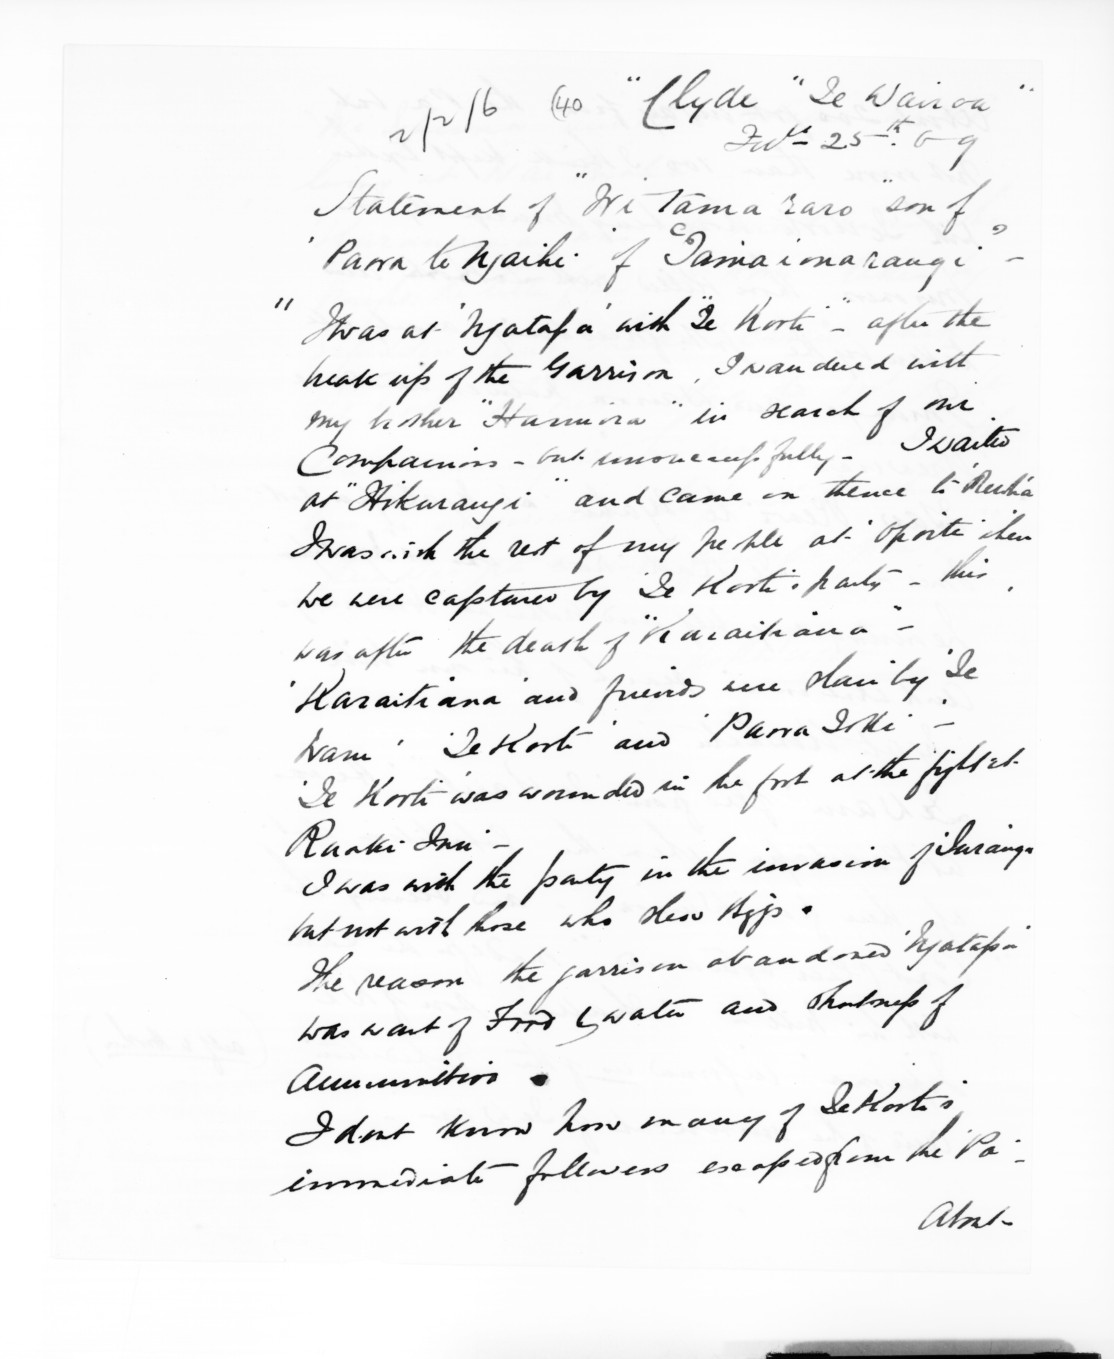 2/2/6 (40 "Clyde "Te Wairoa"
Feb 25th. 69
Statement of "Wi Tama raro" son of
'Paora te Ngaihi' of "Tamaionarangi" -
" I was at 'Ngatapa' with "Te Korti" - after the
break up of the Garrison, I wandered with
my brother "Hamiora" in search of our
Companions - but unsuccessfully - I waited
at "Hikurangi" and came on thence to
I was with the rest of my people at 'Opoiti' when
we were captured by 'Te Korti's party - this
was after the death of "Karaitiana" -
'Karaitiana' and friends were slain by 'Te
Waru' 'Te Korti' and 'Paora Toki' -
'Te Korti' was wounded in the foot at the fight at
Ruaki Inui -
I was with the party in the invasion of Turanga
but not with those who slew Biggs.
The reason the garrison abandoned 'Ngatapa'
was want of Food & water and shortness of
Ammunition.
I dont know how many of Te Korti's
immediate followers escaped from the 'Pa' -
About